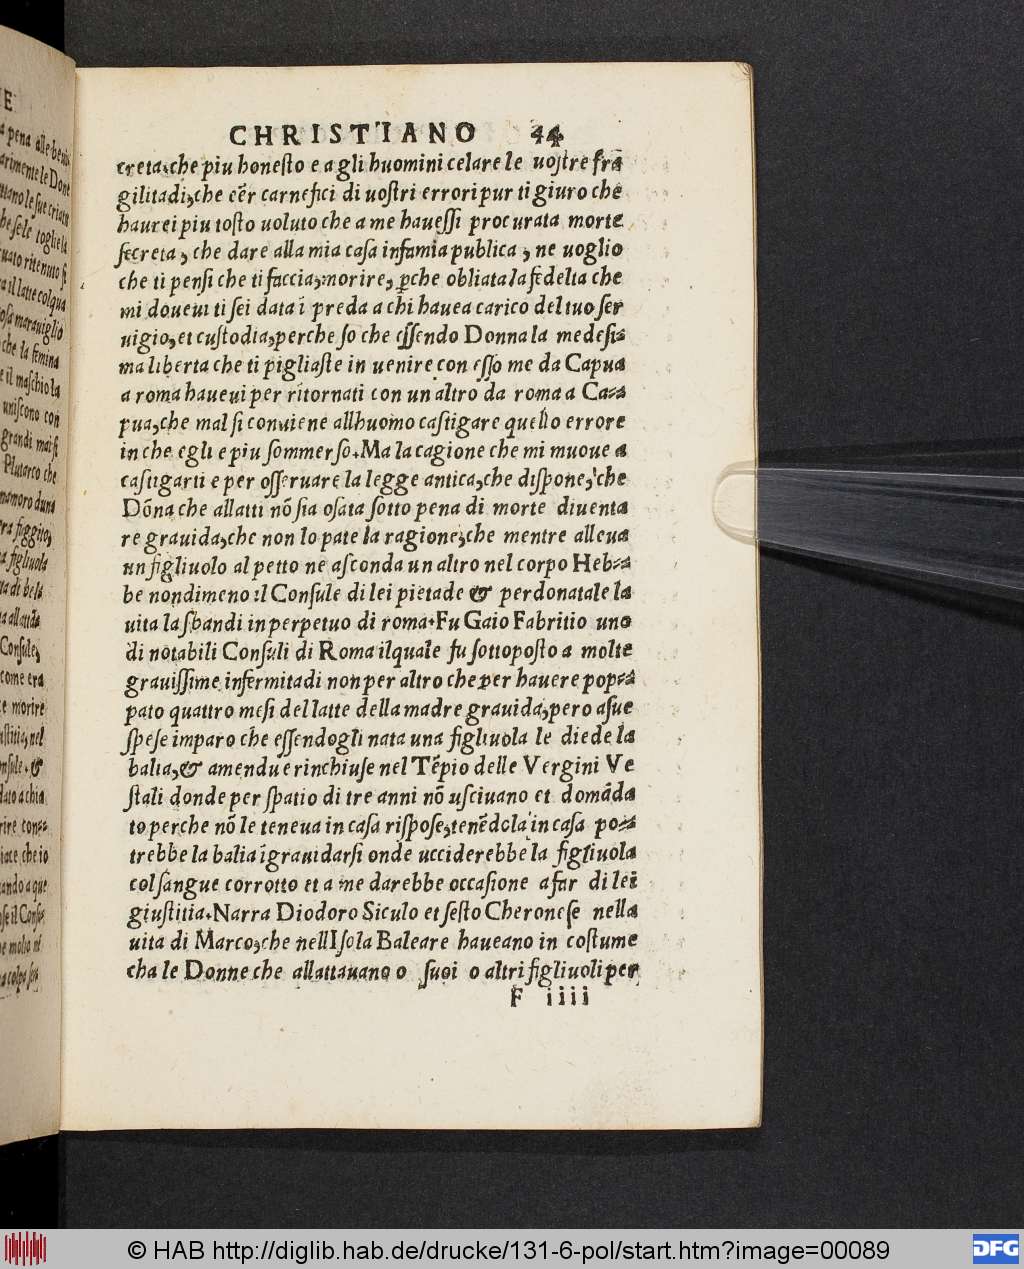 CHRISTIANO 44
creta, che piu honeſto e a gli huomini celare le uoſtre fra
gilitadi, che eēr carnefici di uoſtri errori pur ti giuro che
haurei piu toſto uoluto che a me haueſſi procurata morte
ſecreta, che dare alla mia caſa infamia publica, ne uoglio
che ti penſi che ti faccia, morire, ꝑche obliata la fedelta che
mi doueui ti ſei data ī preda a chi hauea carico del tuo ſer
uigio, et cuſtodia, perche ſo che eſſendo Donna la medeſi⸗
ma liberta che ti pigliaſte in uenire con eſſo me da Capua
a roma haueui per ritornati con un altro da roma a Ca⸗
pua, che mal ſi conuiene allhuomo caſtigare quello errore
in che egli e piu ſommerſo. Ma la cagione che mi muoue a
caſtigarti e per oſſeruare la legge antica, che diſpone, che
Dōna che allatti nō ſia oſata ſotto pena di morte diuenta
re grauida, che non lo pate la ragione, che mentre alleua
un figliuolo al petto ne aſconda un altro nel corpo Heb⸗
be nondimeno il Conſule di lei pietade & perdonatale la
uita la ſbandi in perpetuo di roma. Fu Gaio Fabritio uno
di notabili Conſuli di Roma ilquale fu ſottopoſto a molte
grauiſſime infermitadi non per altro che ꝑer hauere pop⸗
pato quattro meſi del latte della madre grauida, pero aſue
ſpeſe imparo che eſſendogli nata una figliuola le diede la
balia, & amendue rinchiuſe nel Tēpio delle Vergini Ve
ſtali donde per ſpatio di tre anni nō uſciuano et domāda
to perche nō le teneua in caſa riſpoſe, tenēdola in caſa po⸗
trebbe la balia īgrauidarſi onde ucciderebbe la figliuola
col ſangue corrotto et a me darebbe occaſione a far di lei
giuſtitia. Narra Diodoro Siculo et ſeſto Cheroneſe nella
uita di Marco, che nell Iſola Baleare haueano in coſtume
cha le Donne che allattauano o ſuoi o altri figliuoli per
F iiii
© HAB http://diglib.hab.de/drucke/131-6-pol/start.htm?image=00089
DFG